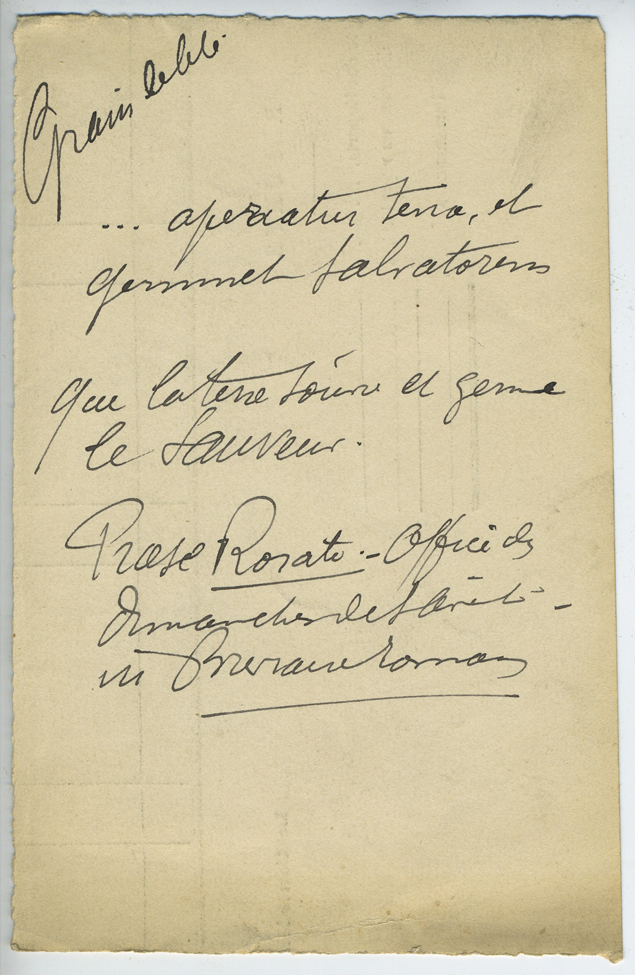 Grain de blé
... aperiatur terra, et
germinet Salvatorem
Que la terre s'ouvre et germe
le Sauveur.
Prose Rorate - Office des
dimanches de l'Avent -
in Bréviaire romain